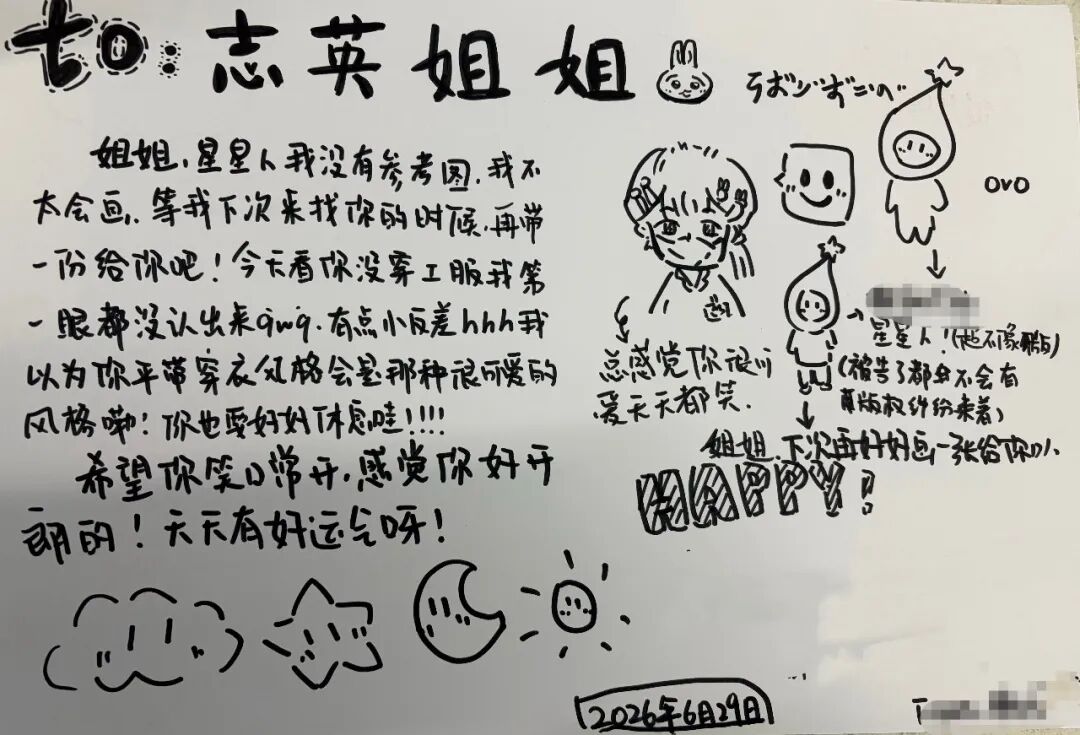 to: 志英姐姐
姐姐,星星人我没有参考图,我不
太会画,等我下次来找你的时候,再带
一份给你吧!今天看你没穿工服我第
一眼都没认出来qwq.有点小反差hhh我
以为你平常穿衣风格会是那种很可爱的
风格嘞!你也要好好休息哇!!!!
希望你笑口常开,感觉你好开
朗的!天天有好运气呀!
总感觉你很
爱天天都笑.
OVO
星星人!(超不像
(被告了都不会有
版权纠纷来着)
姐姐,下次再好好画一张给你
HAPPY!
2026年6月29日